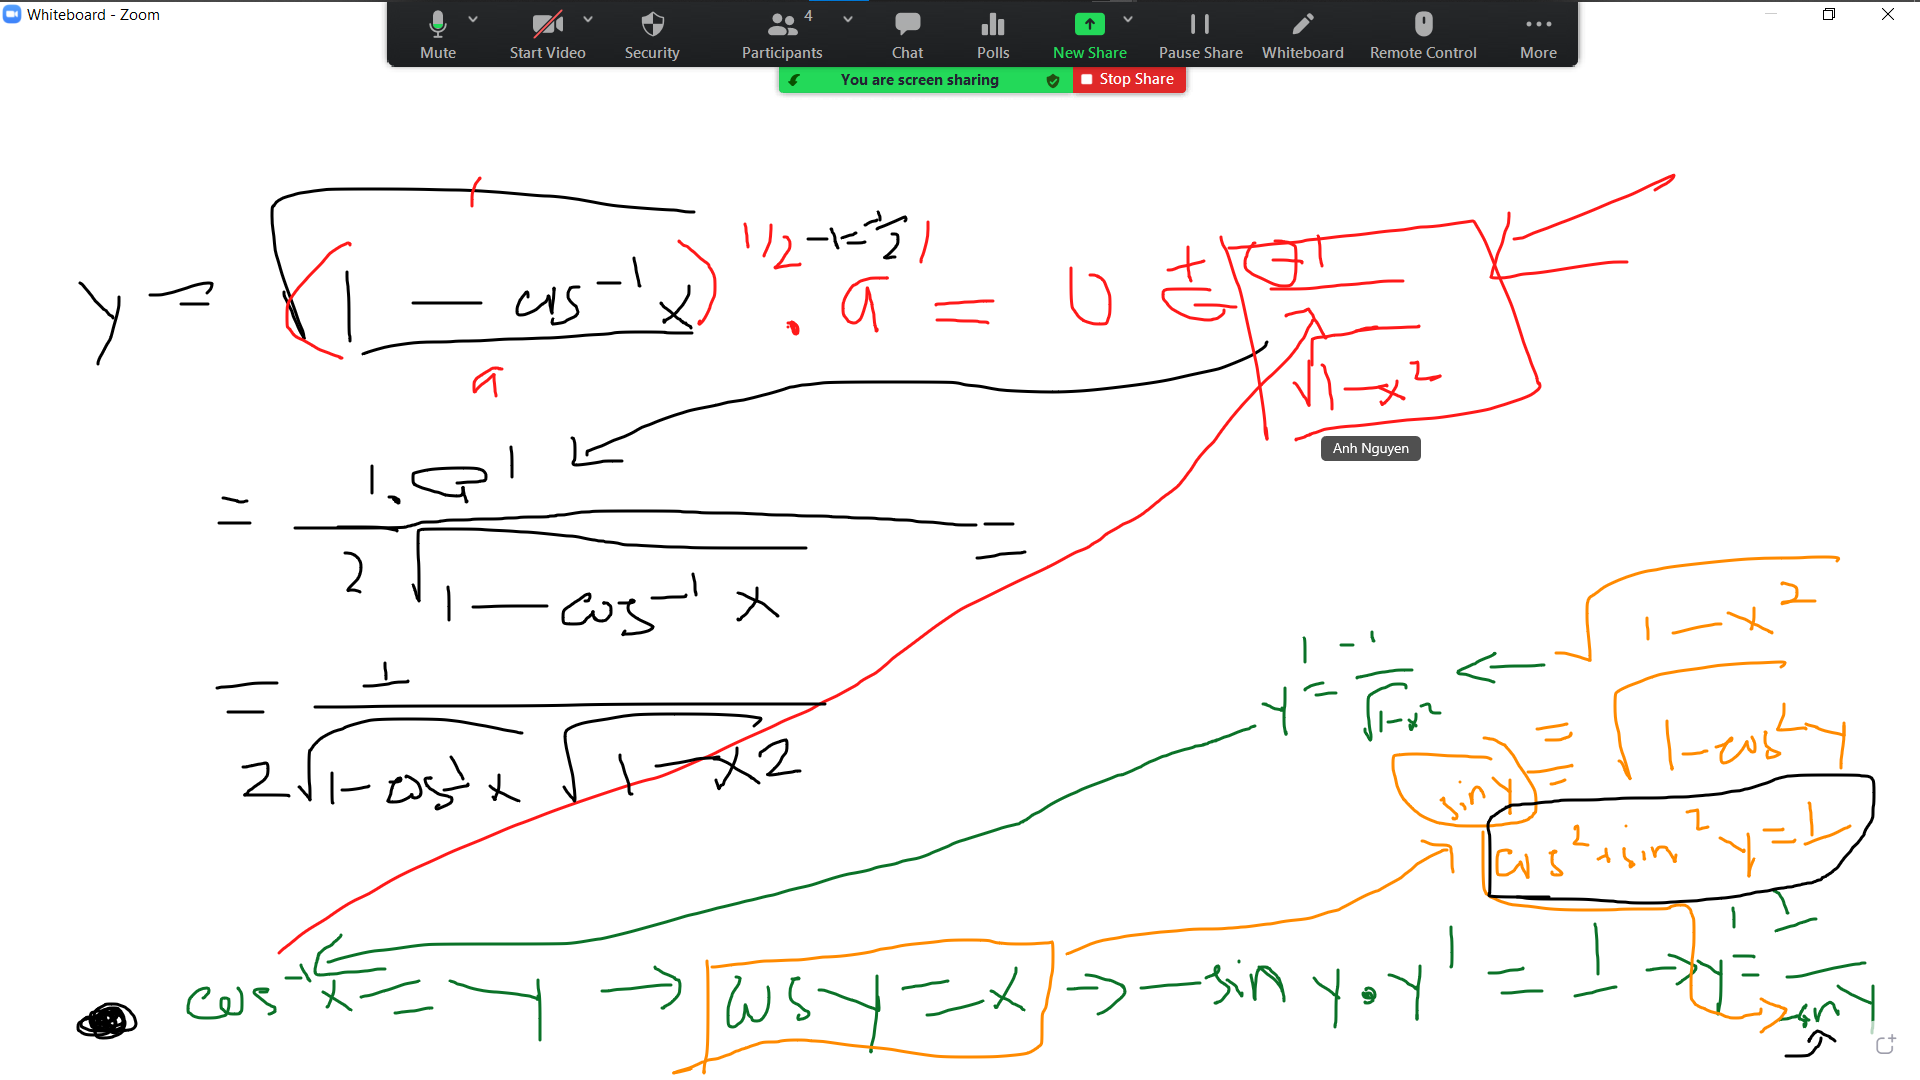 Whiteboard - Zoom
Mute
Start Video
Security
4
Participants
Chat
Polls
New Share
Pause Share
Whiteboard
Remote Control
More
You are screen sharing
Stop Share
y = √(1 − cos⁻¹ x)^1/2 −1 = −1/2 · a' = 0 ± −1/√1−x²
a
Anh Nguyen
= 1·−1 / 2√1 − cos⁻¹ x =
= 1 / 2√1−cos⁻¹ x √1−x2
√1−x²
y' = −1/√1−x² ←
= √1−cos² y
= sin y
cos² + sin² y = 1
cos⁻¹ x = y → cos y = x → −sin y · y' = 1 → y' = 1/−sin y